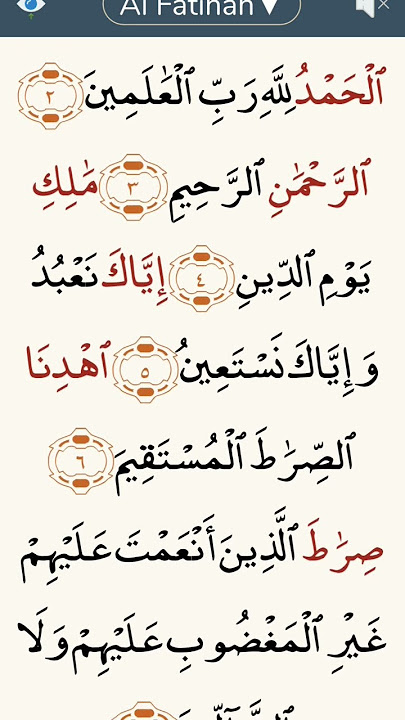 Al Fatihah ▼
ٱلْحَمْدُ لِلَّهِ رَبِّ ٱلْعَٰلَمِينَ ٢
ٱلرَّحْمَٰنِ ٱلرَّحِيمِ ٣ مَٰلِكِ
يَوْمِ ٱلدِّينِ ٤ إِيَّاكَ نَعْبُدُ
وَإِيَّاكَ نَسْتَعِينُ ٥ ٱهْدِنَا
ٱلصِّرَٰطَ ٱلْمُسْتَقِيمَ ٦
صِرَٰطَ ٱلَّذِينَ أَنْعَمْتَ عَلَيْهِمْ
غَيْرِ ٱلْمَغْضُوبِ عَلَيْهِمْ وَلَا